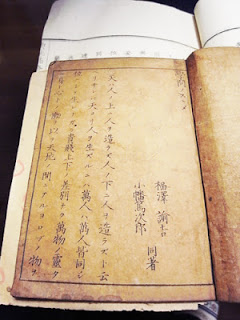 福澤諭吉
小幡篤次郎 同著
天ハ人ノ上ニ人ヲ造ラズ人ノ下ニ人ヲ造ラズト云
ヘリサレバ天ヨリ人ヲ生ズルニハ萬人ハ萬人皆同ジ
位ニシテ生レナガラ貴賤上下ノ差別ナク萬物ノ靈タ
ル身ト心トノ働ヲ以テ天地ノ間ニアルヨロヅノ物ヲ